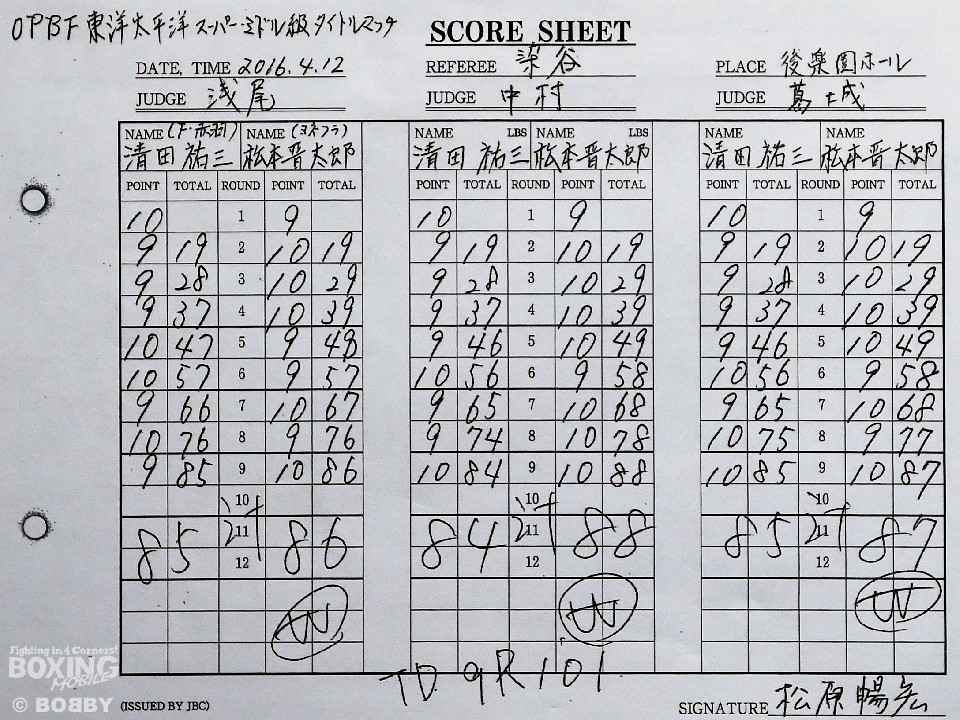 OPBF 東洋太平洋 スーパー・ミドル級 タイトルマッチ
SCORE SHEET
DATE, TIME 2016.4.12 REFEREE 染谷 PLACE 後楽園ホール
JUDGE 浅尾 JUDGE 中村 JUDGE 葛城
NAME (F・赤羽) NAME (ヨネクラ) NAME LBS NAME LBS NAME NAME
清田 祐三 松本晋太郎 清田 祐三 松本晋太郎 清田 祐三 松本晋太郎
POINT TOTAL ROUND POINT TOTAL POINT TOTAL ROUND POINT TOTAL POINT TOTAL ROUND POINT TOTAL
10 1 9 10 1 9 10 1 9
9 19 2 10 19 9 19 2 10 19 9 19 2 10 19
9 28 3 10 29 9 28 3 10 29 9 28 3 10 29
9 37 4 10 39 9 37 4 10 39 9 37 4 10 39
10 47 5 9 48 9 46 5 10 49 9 46 5 10 49
10 57 6 9 57 10 56 6 9 58 10 56 6 9 58
9 66 7 10 67 9 65 7 10 68 9 65 7 10 68
10 76 8 9 76 9 74 8 10 78 10 75 8 9 77
9 85 9 10 86 10 84 9 10 88 10 85 9 10 87
10 10 10
85 11 86 84 11 88 85 11 87
12 12 12
W W W
Fighting in 4 Corners!
BOXING
MOBILE
© BOBBY
TD 9R 1 01
(ISSUED BY JBC) SIGNATURE 松原 暢宏